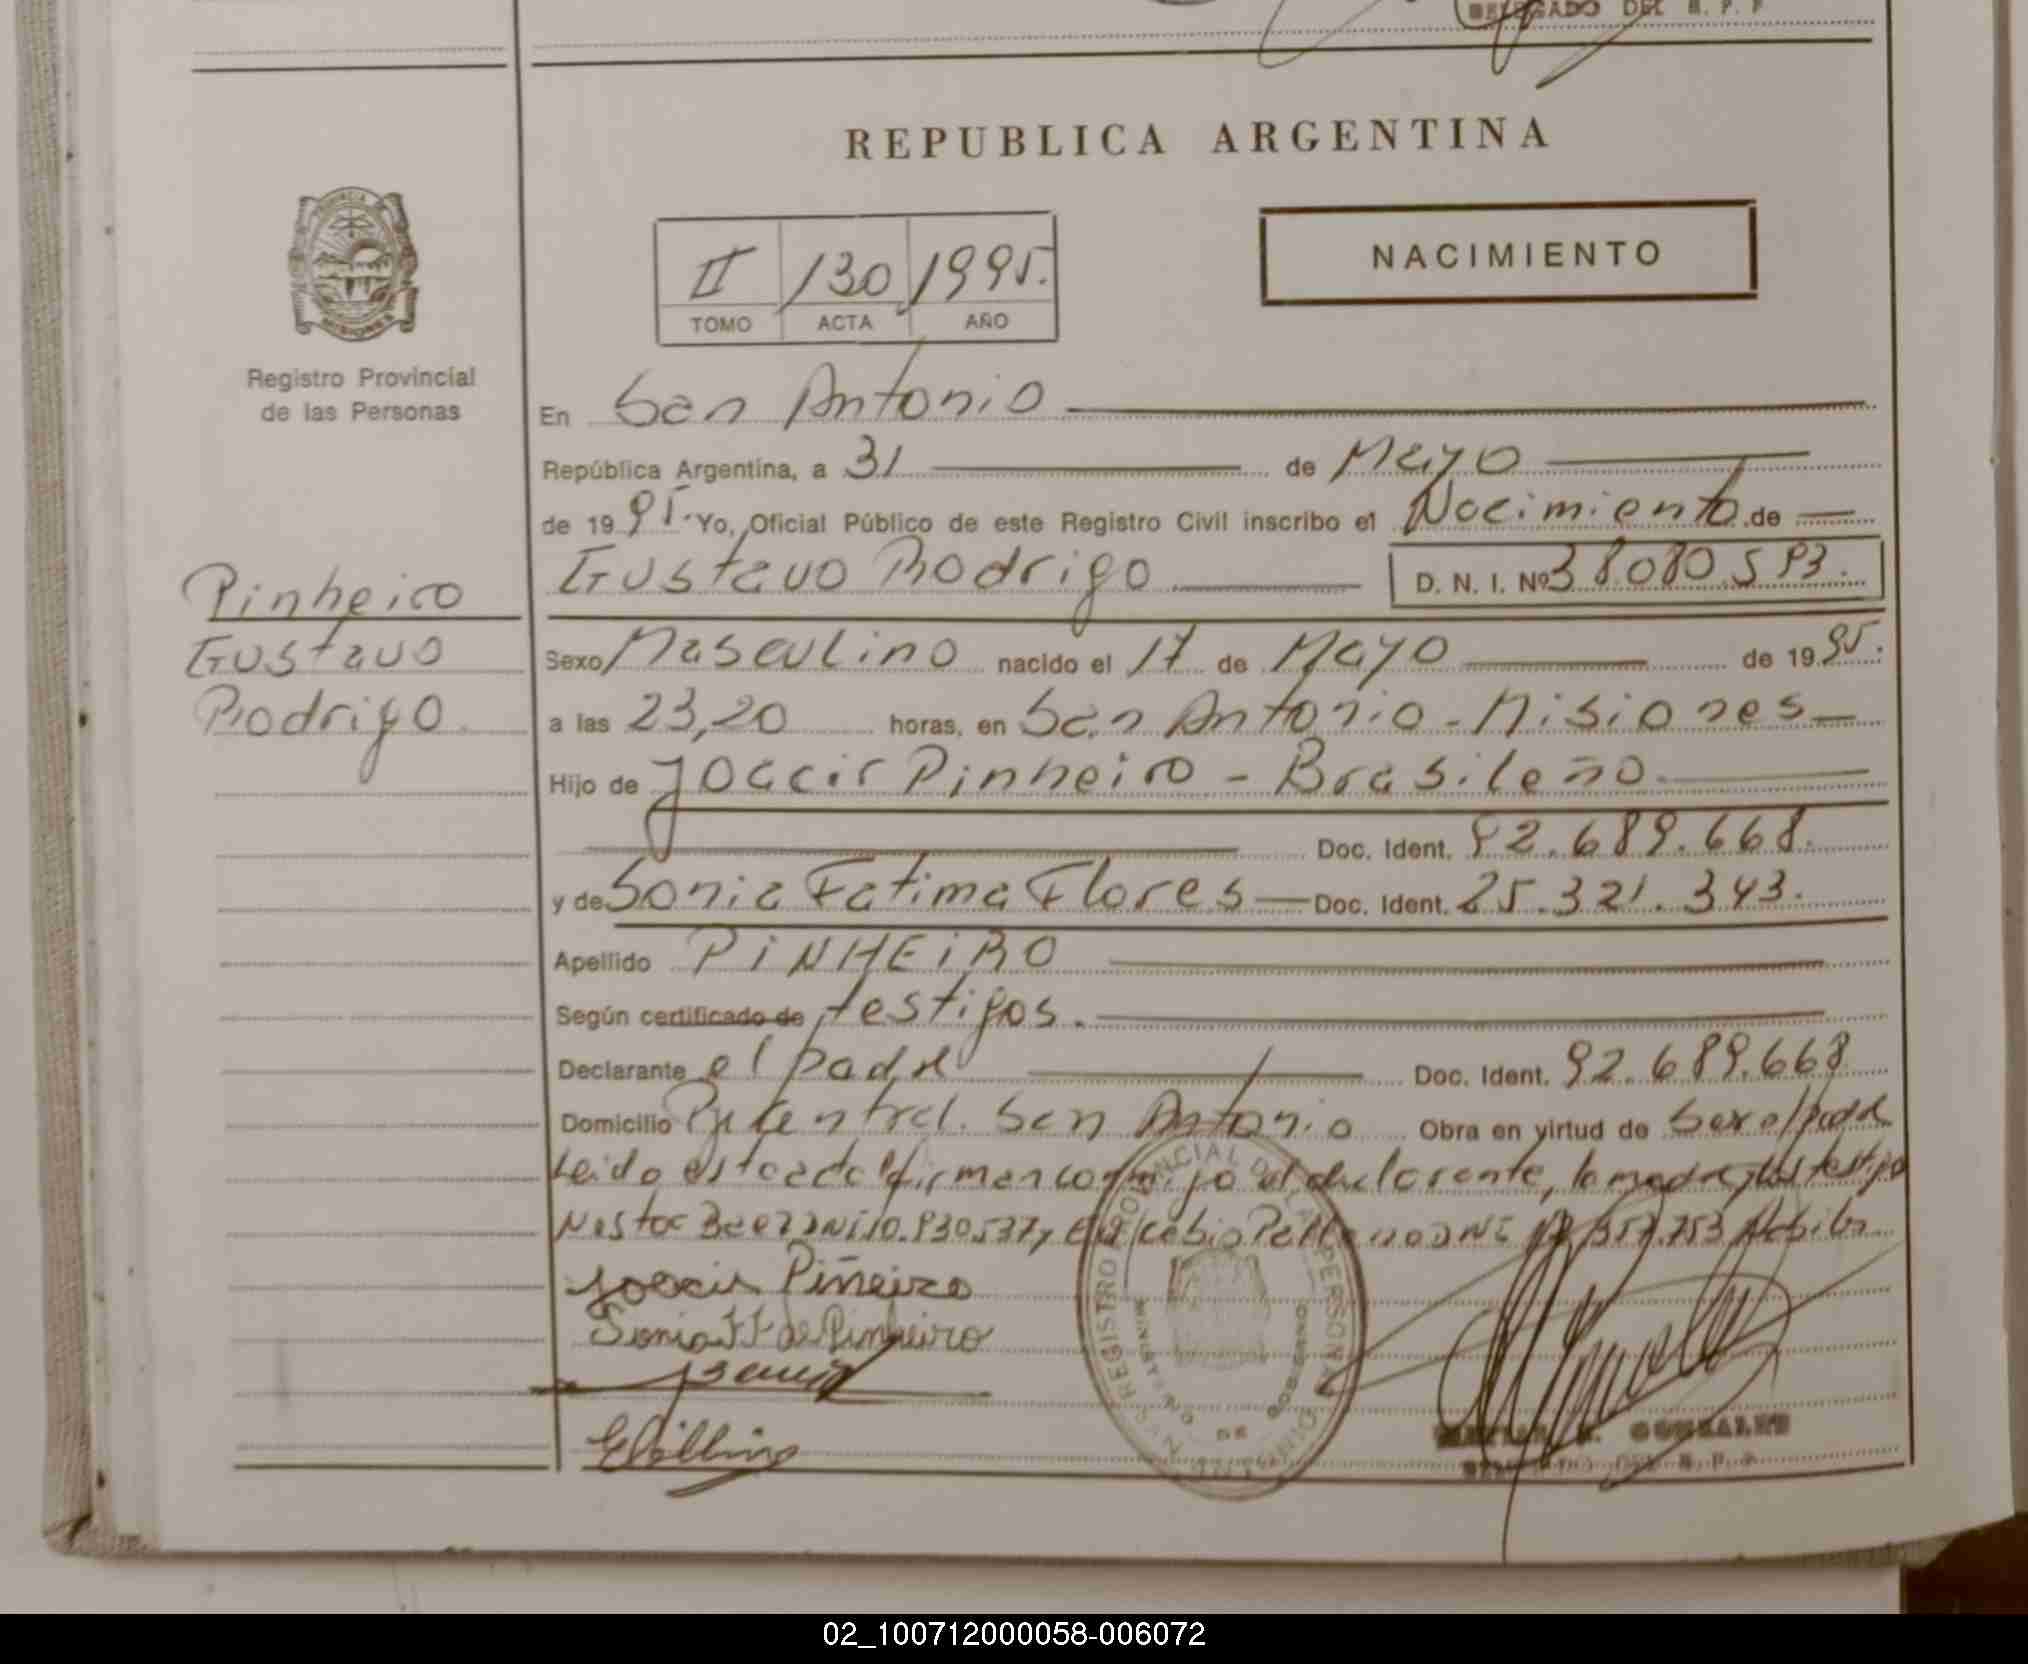 DELEGADO DEL R. P. P
REPUBLICA ARGENTINA
NACIMIENTO
II 130 1995.
TOMO ACTA AÑO
PROVINCIA
MISIONES
Registro Provincial
de las Personas
En San Antonio
República Argentina, a 31 de Mayo
de 1995. Yo, Oficial Público de este Registro Civil inscribo el Nacimiento de
Gustavo Rodrigo D. N. I. Nº 38080.593.
Pinheiro
Gustavo
Rodrigo.
Sexo Masculino nacido el 17 de Mayo de 1995.
a las 23,20 horas, en San Antonio - Misiones
Hijo de Joacir Pinheiro - Brasileño.
Doc. Ident. 92.689.668.
y de Sonia Fatima Flores Doc. Ident. 25.321.343.
Apellido PINHEIRO
Según certificado de testigos.
Declarante el padre Doc. Ident. 92.689.668
Domicilio Central. San Antonio Obra en virtud de Ser el padre
Leida esta acta firman conmigo el declarante, la madre y los testigos
Nestor Baez DNI 10.930.537 y DNI 357.753
Joacir Piñeiro
Sonia F F de Pinheiro
REGISTRO PROVINCIAL DE LAS PERSONAS
MINISTERIO DE GOBIERNO
GONZALEZ
R. P. P
02_100712000058-006072